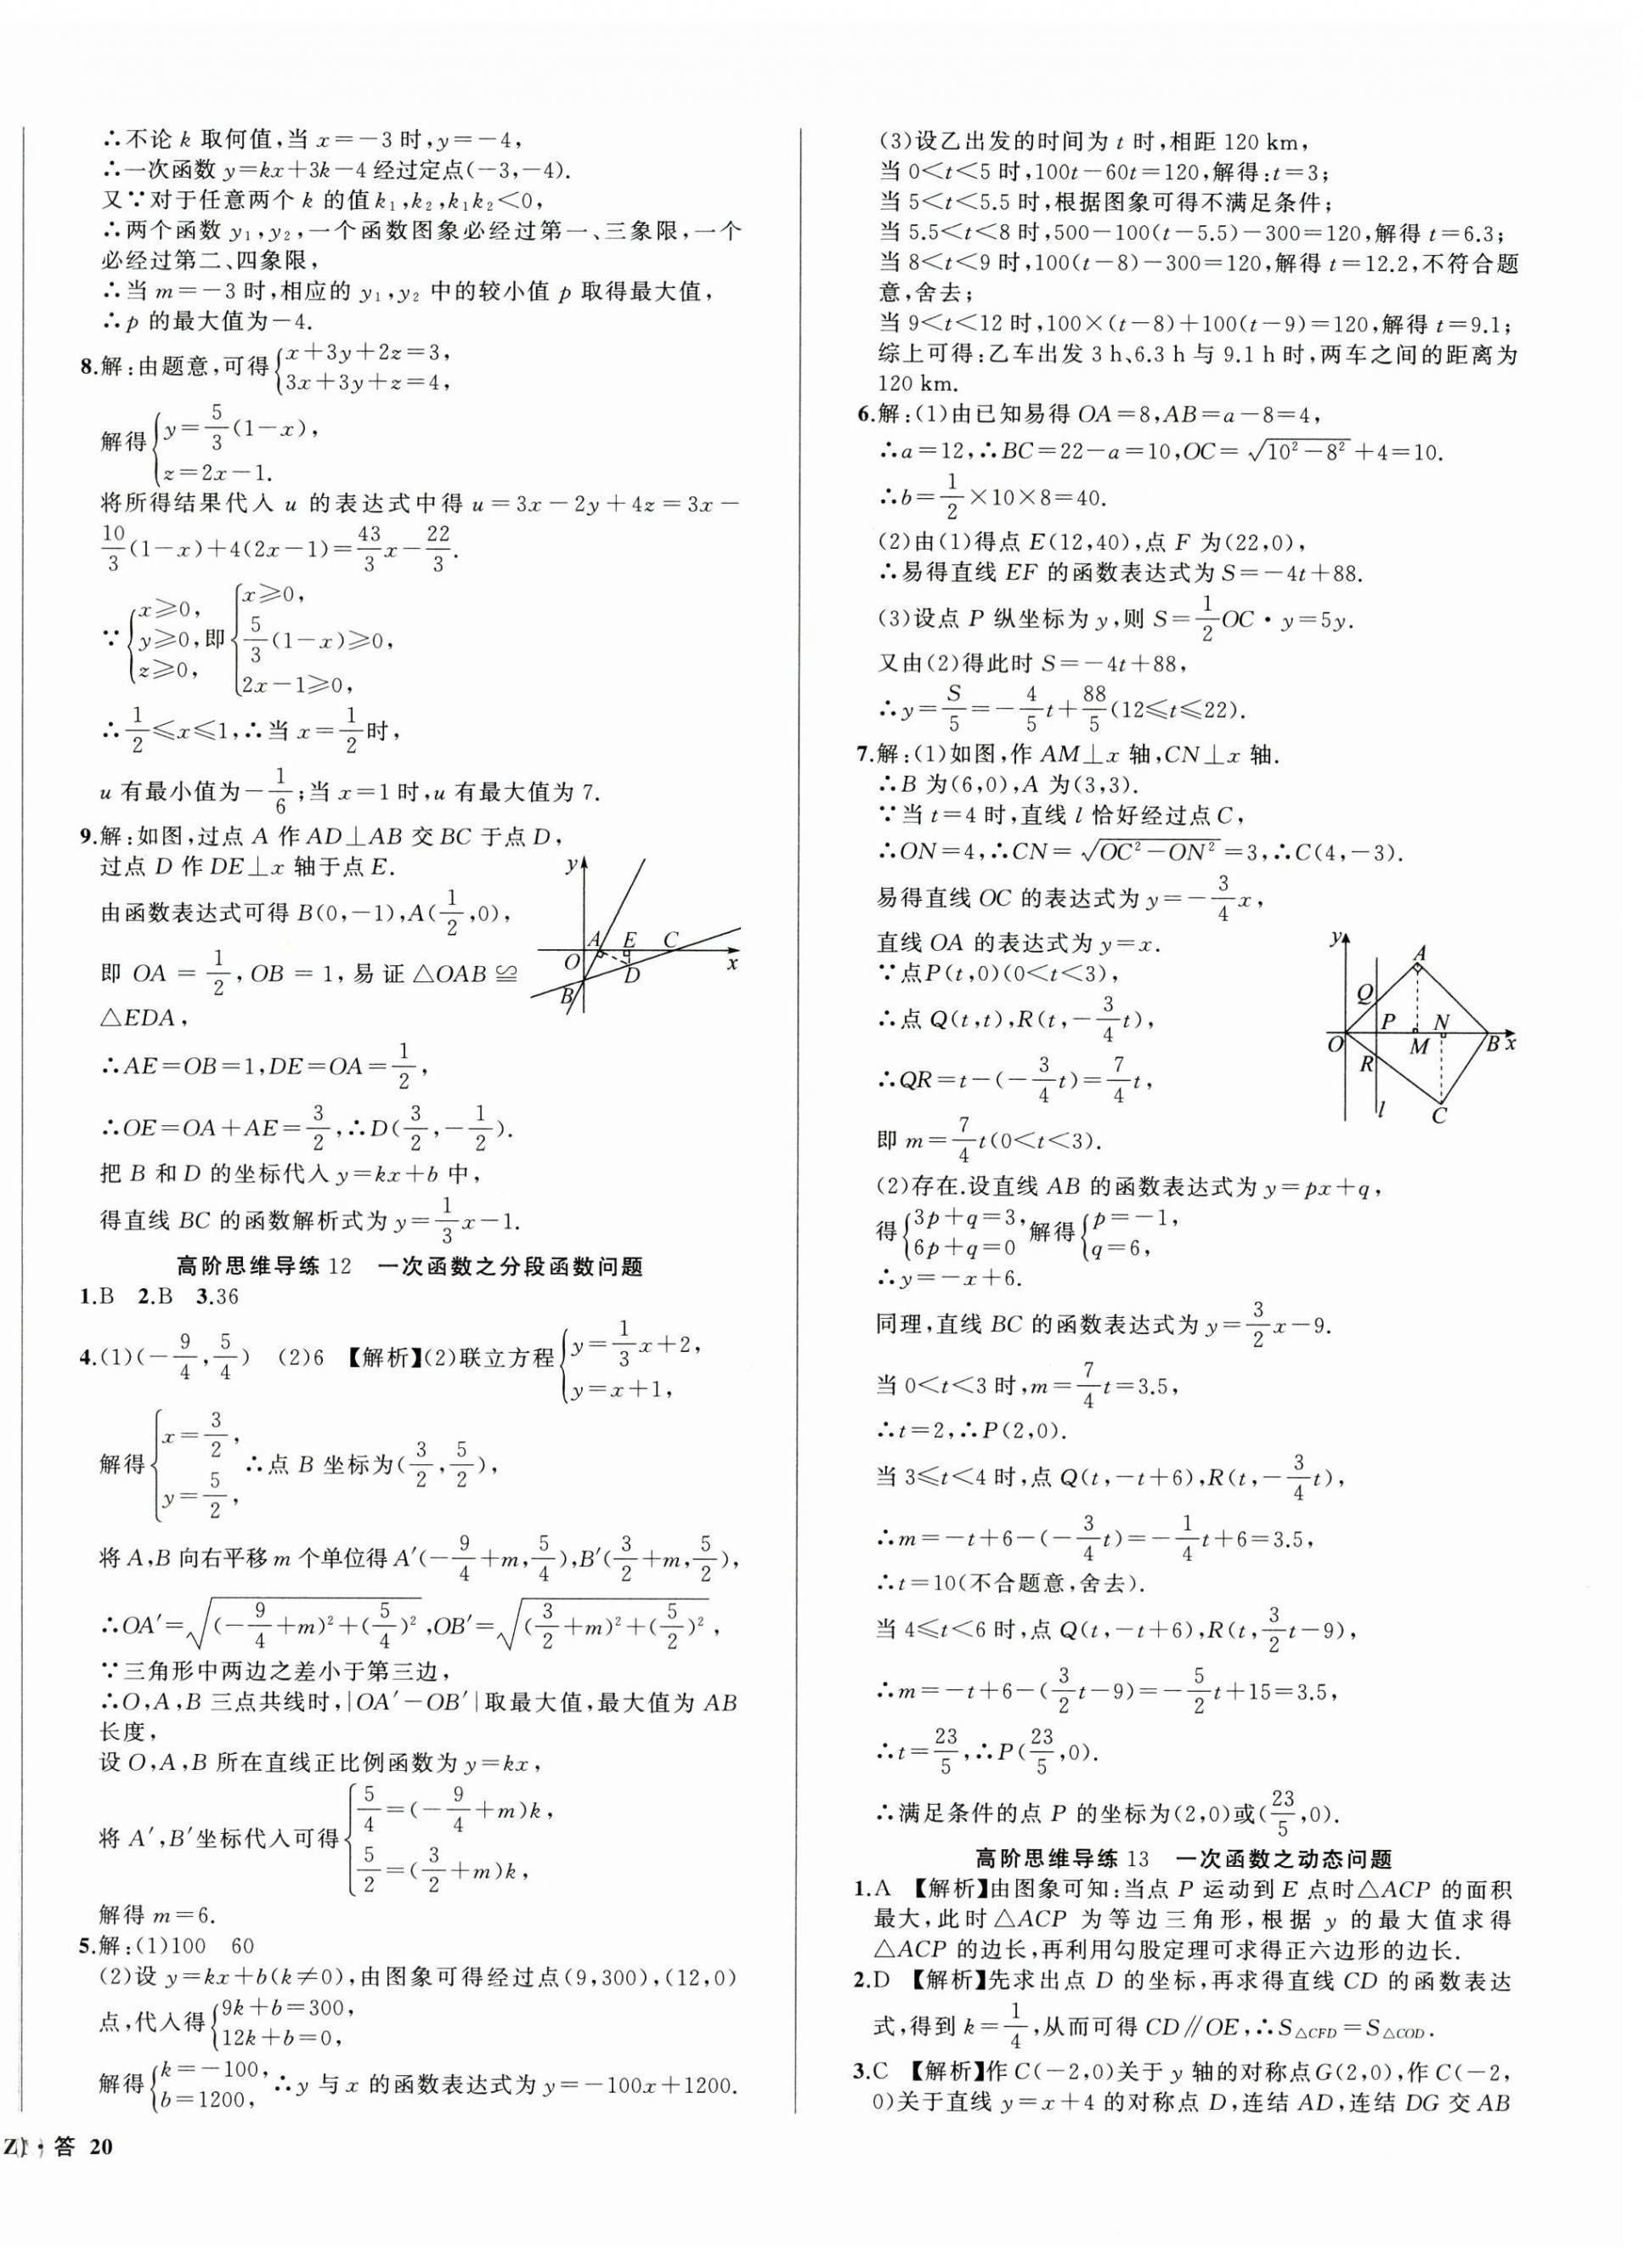 ∴不论 k 取何值,当 x=-3 时,y=-4,
∴一次函数 y=kx+3k-4 经过定点(-3,-4).
又∵对于任意两个 k 的值 k₁,k₂,k₁k₂<0,
∴两个函数 y₁,y₂,一个函数图象必经过第一、三象限,一个
必经过第二、四象限,
∴当 m=-3 时,相应的 y₁,y₂ 中的较小值 p 取得最大值,
∴p 的最大值为-4.
8.解:由题意,可得{x+3y+2z=3, 3x+3y+z=4,
解得{y=5/3(1-x), z=2x-1.
将所得结果代入 u 的表达式中得 u=3x-2y+4z=3x-
10/3(1-x)+4(2x-1)=43/3x-22/3.
∵{x≥0, y≥0, z≥0, 即{x≥0, 5/3(1-x)≥0, 2x-1≥0,
∴1/2≤x≤1,∴当 x=1/2时,
u 有最小值为-1/6;当 x=1 时,u 有最大值为 7.
9.解:如图,过点 A 作 AD⊥AB 交 BC 于点 D,
过点 D 作 DE⊥x 轴于点 E.
由函数表达式可得 B(0,-1),A(1/2,0),
即 OA=1/2,OB=1,易证△OAB≌
△EDA,
∴AE=OB=1,DE=OA=1/2,
∴OE=OA+AE=3/2,∴D(3/2,-1/2).
把 B 和 D 的坐标代入 y=kx+b 中,
得直线 BC 的函数解析式为 y=1/3x-1.
y
A E C
O D x
B
高阶思维导练 12 一次函数之分段函数问题
1.B 2.B 3.36
4.(1)(-9/4,5/4) (2)6 【解析】(2)联立方程{y=1/3x+2, y=x+1,
解得{x=3/2, y=5/2, ∴点 B 坐标为(3/2,5/2),
将 A,B 向右平移 m 个单位得 A′(-9/4+m,5/4),B′(3/2+m,5/2),
∴OA′=√((-9/4+m)²+(5/4)²),OB′=√((3/2+m)²+(5/2)²),
∵三角形中两边之差小于第三边,
∴O,A,B 三点共线时,|OA′-OB′|取最大值,最大值为 AB
长度,
设 O,A,B 所在直线正比例函数为 y=kx,
将 A′,B′坐标代入可得{5/4=(-9/4+m)k, 5/2=(3/2+m)k,
解得 m=6.
5.解:(1)100 60
(2)设 y=kx+b(k≠0),由图象可得经过点(9,300),(12,0)
点,代入得{9k+b=300, 12k+b=0,
解得{k=-100, b=1200, ∴y 与 x 的函数表达式为 y=-100x+1200.
(3)设乙出发的时间为 t 时,相距 120 km,
当 0<t<5 时,100t-60t=120,解得:t=3;
当 5<t<5.5 时,根据图象可得不满足条件;
当 5.5<t<8 时,500-100(t-5.5)-300=120,解得 t=6.3;
当 8<t<9 时,100(t-8)-300=120,解得 t=12.2,不符合题
意,舍去;
当 9<t<12 时,100×(t-8)+100(t-9)=120,解得 t=9.1;
综上可得:乙车出发 3 h、6.3 h 与 9.1 h 时,两车之间的距离为
120 km.
6.解:(1)由已知易得 OA=8,AB=a-8=4,
∴a=12,∴BC=22-a=10,OC=√(10²-8²)+4=10.
∴b=1/2×10×8=40.
(2)由(1)得点 E(12,40),点 F 为(22,0),
∴易得直线 EF 的函数表达式为 S=-4t+88.
(3)设点 P 纵坐标为 y,则 S=1/2OC·y=5y.
又由(2)得此时 S=-4t+88,
∴y=S/5=-4/5t+88/5(12≤t≤22).
7.解:(1)如图,作 AM⊥x 轴,CN⊥x 轴.
∴B 为(6,0),A 为(3,3).
∵当 t=4 时,直线 l 恰好经过点 C,
∴ON=4,∴CN=√(OC²-ON²)=3,∴C(4,-3).
易得直线 OC 的表达式为 y=-3/4x,
直线 OA 的表达式为 y=x.
∵点P(t,0)(0<t<3),
∴点 Q(t,t),R(t,-3/4t),
∴QR=t-(-3/4t)=7/4t,
即 m=7/4t(0<t<3).
y
A
Q
P N
O M B x
R
l C
(2)存在.设直线 AB 的函数表达式为 y=px+q,
得{3p+q=3, 6p+q=0 解得{p=-1, q=6,
∴y=-x+6.
同理,直线 BC 的函数表达式为 y=3/2x-9.
当 0<t<3 时,m=7/4t=3.5,
∴t=2,∴P(2,0).
当 3≤t<4 时,点 Q(t,-t+6),R(t,-3/4t),
∴m=-t+6-(-3/4t)=-1/4t+6=3.5,
∴t=10(不合题意,舍去).
当 4≤t<6 时,点 Q(t,-t+6),R(t,3/2t-9),
∴m=-t+6-(3/2t-9)=-5/2t+15=3.5,
∴t=23/5,∴P(23/5,0).
∴满足条件的点 P 的坐标为(2,0)或(23/5,0).
高阶思维导练 13 一次函数之动态问题
1.A 【解析】由图象可知:当点 P 运动到 E 点时△ACP 的面积
最大,此时△ACP 为等边三角形,根据 y 的最大值求得
△ACP 的边长,再利用勾股定理可求得正六边形的边长.
2.D 【解析】先求出点 D 的坐标,再求得直线 CD 的函数表达
式,得到 k=1/4,从而可得 CD∥OE,∴S△CFD=S△COD.
3.C 【解析】作 C(-2,0)关于 y 轴的对称点G(2,0),作 C(-2,
0)关于直线 y=x+4 的对称点 D,连结 AD,连结 DG 交 AB
答 20